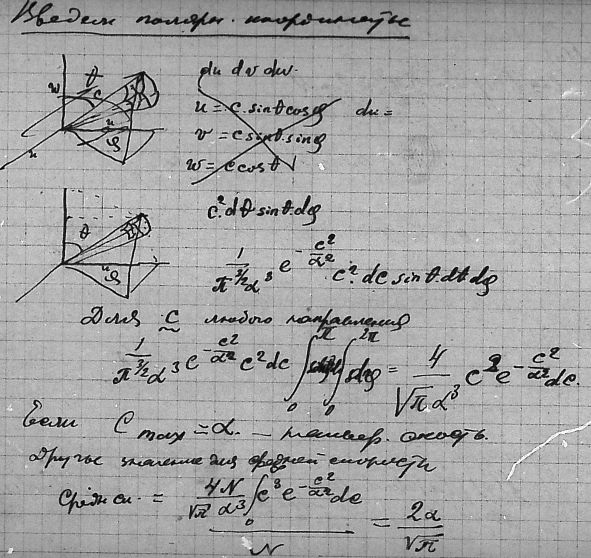 Введем полярн. координаты
du dv dw.
u = c·sinθ cosφ du =
v = c sinθ·sinφ
w = c cosθ
c². dθ sinθ. dφ
1/(π^{3/2} α³) e^{-c²/α²} c². dc sinθ. dθ dφ
Для c любого направления
1/(π^{3/2} α³) e^{-c²/α²} c² dc ∫₀^π ∫₀^{2π} dφ = 4/(√π α³) c² e^{-c²/α²} dc.
Если C max = α. –
Другое значение для средней скорости
Средн ск. = (4N/(√π α³) ∫₀ c³ e^{-c²/α²} dc)/N = 2α/√π